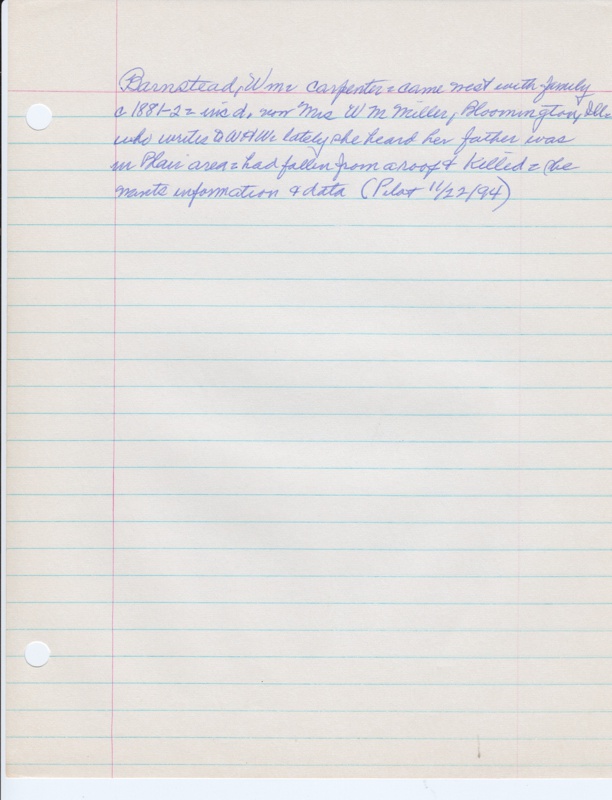 Barnstead, Wm = carpenter = came west with family
c 1881-2 = inc d, now Mrs W M Miller, Bloomington, Ill =
who writes lately she heard her father was
in Blair area = had fallen from a roof & killed = she
wants information & data (Pilot 11/22/94)